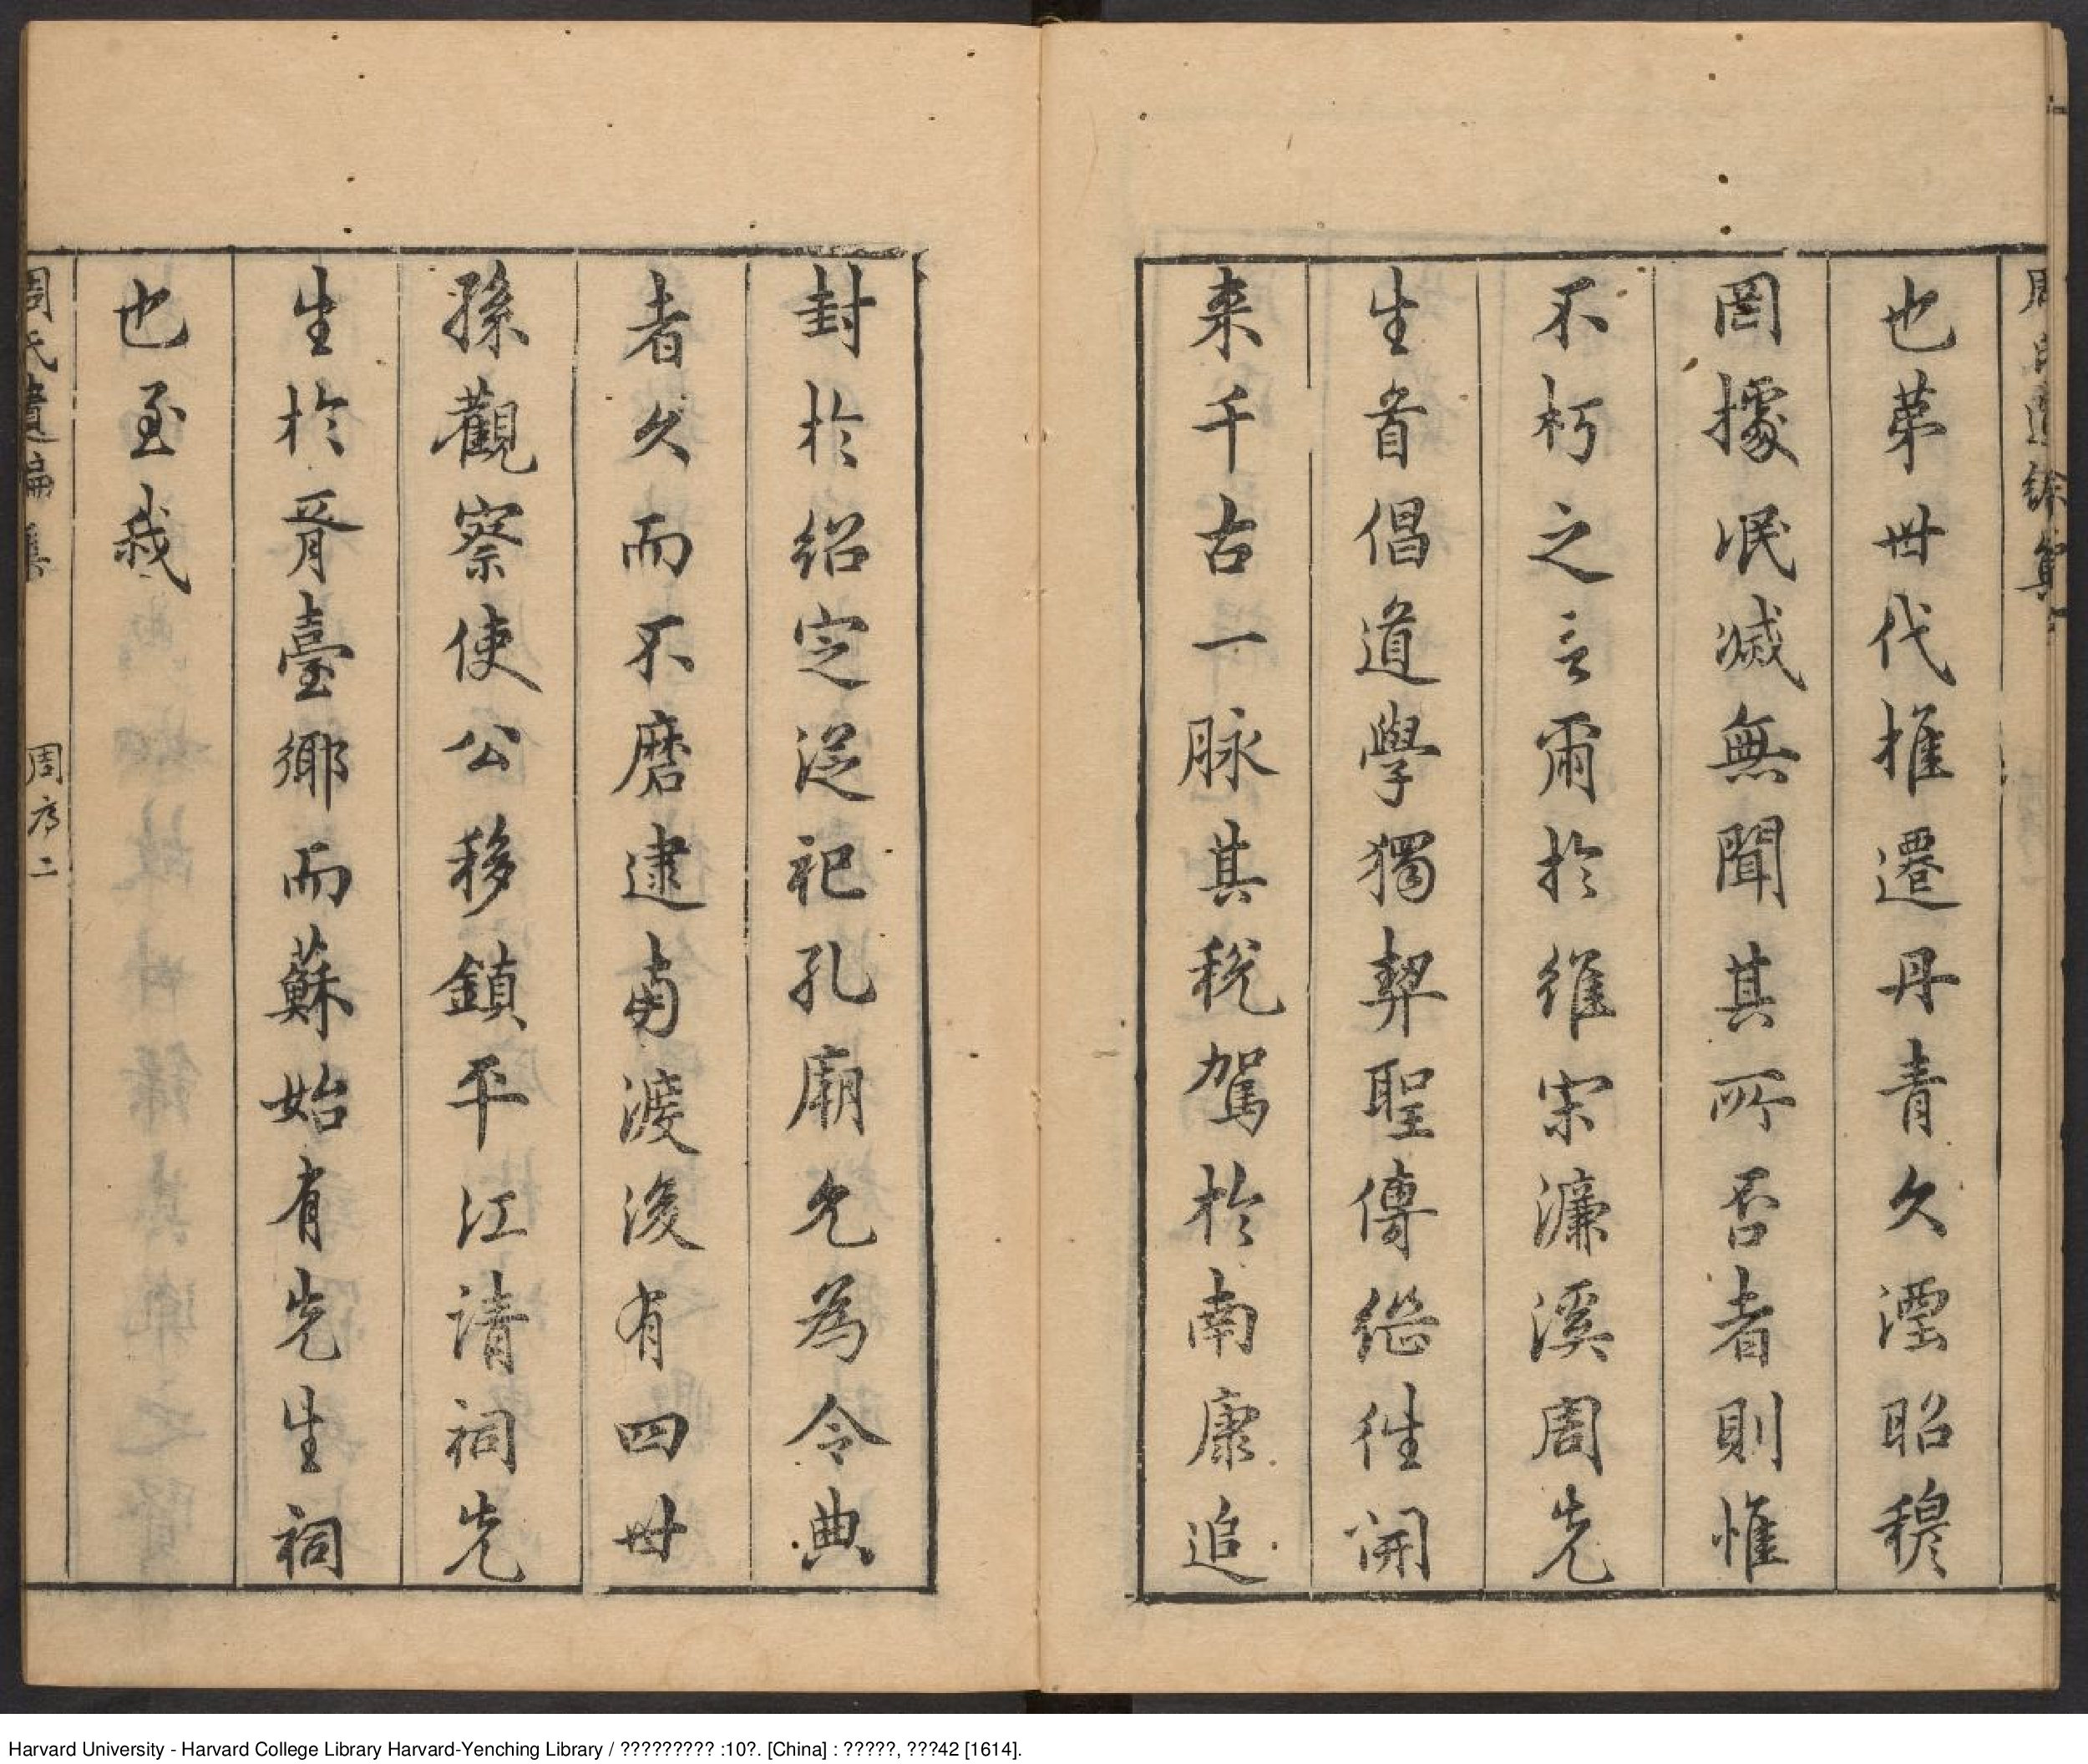 也苐世代推遷丹青久湮昭穆
罔據泯滅無聞其所否者則惟
不朽之言爾於維宋濂溪周先
生首倡道學獨契聖傳継徃開
来千古一脉其税駕於南康追
封於紹定從祀孔廟允為令典
者久而不磨逮南渡後有四世
孫觀察使公移鎮平江請祠先
生於胥臺鄉而蘇始有先生祠
也至我
周氏遺
周序二
Harvard University - Harvard College Library Harvard-Yenching Library / ????????? :10?. [China] : ?????, ???42 [1614].